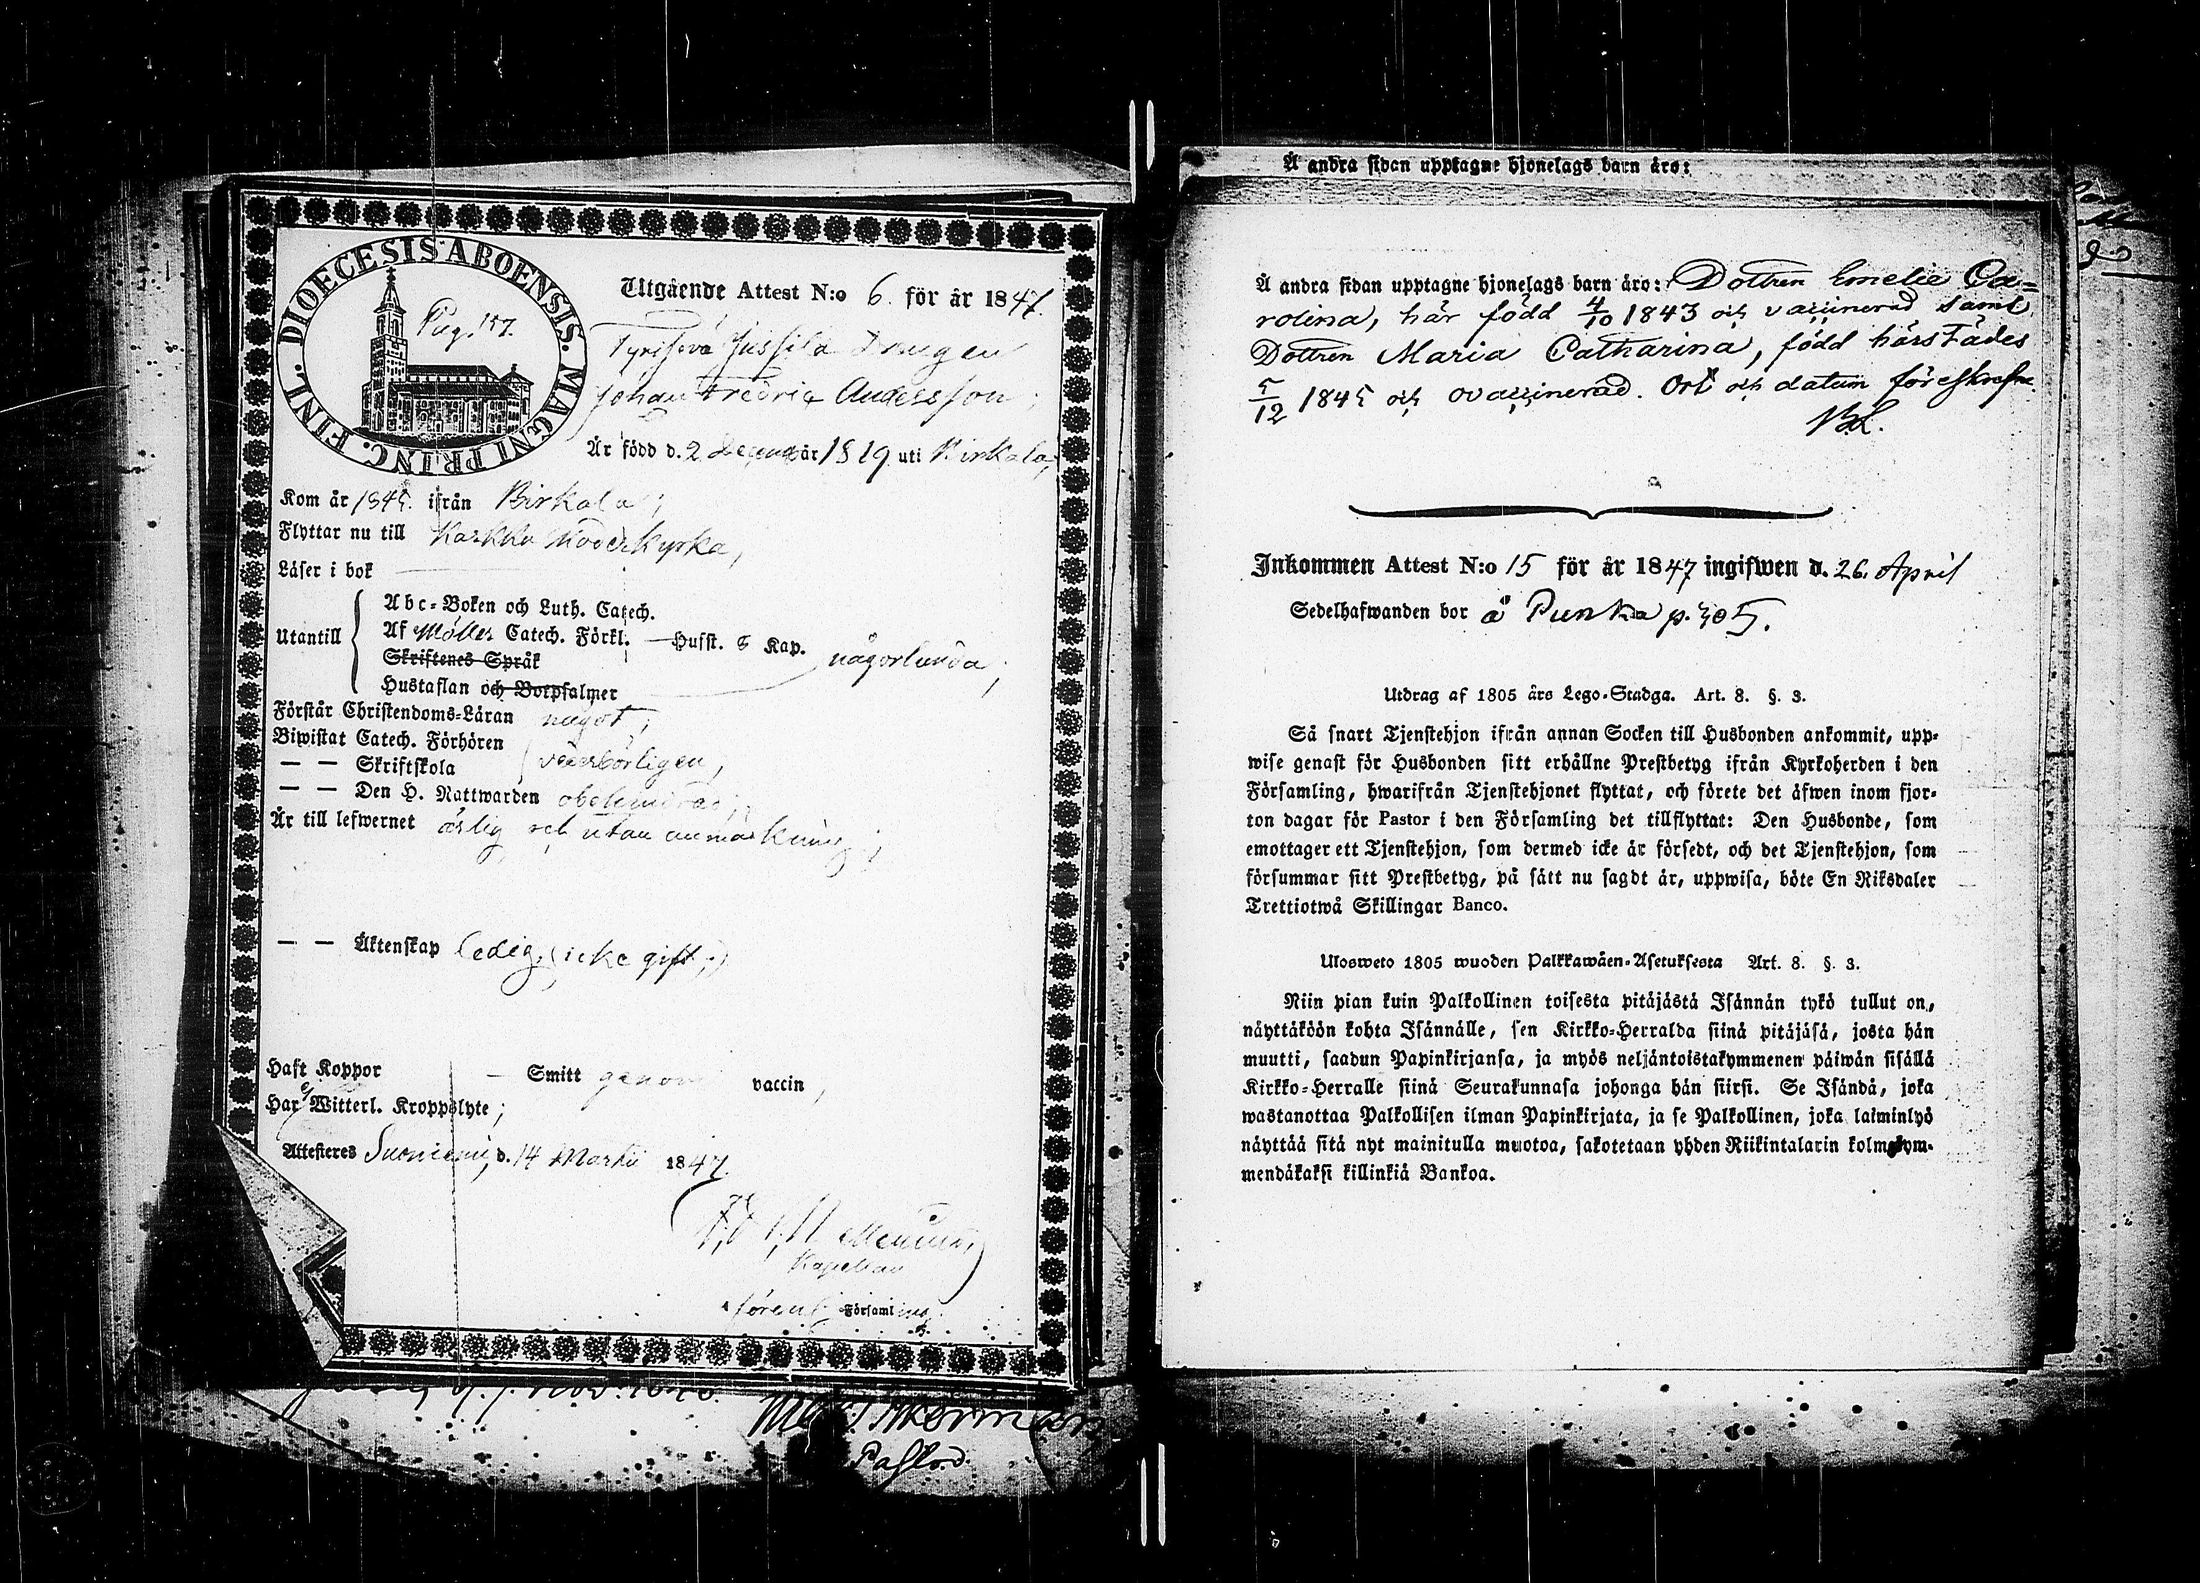 DIOECESIS ABOENSIS. MAGNI PRINC. FINL.
Pag. 157.
Utgående Attest N:o 6. för år 1847.
Drengen
Johan Fredric Andersson;
Är född d. 2 år 1819 uti Birkala;
Kom år 1845. ifrån Birkala;
Flyttar nu till Karkku Moderkyrka,
Läser i bok
Utantill
Abc-Boken och Luth. Catech.
Af Möller Catech. Förkl. — Husst. 8 Kap.
någorlunda;
Skriftenes Språk
Hustaflan och Botpsalmer
Förstår Christendoms-Läran något;
Biwistat Catech. Förhören
— — Skriftskola
vederbörligen,
— — Den H. Nattwarden obehindrad;
Är till lefwernet ärlig och utan anmärkning;
— — Äktenskap ledig, (icke gift;)
Haft Koppor — Smitt genom vaccin,
Har ej Witterl. Kroppslyte;
Attesteres Suoniemi, d. 14 Martii 1847.
Kapellan
Församling.
Pastor
Å andra sidan upptagne hjonelags barn äro:
Å andra sidan upptagne hjonelags barn äro: Dottren Emelie Ca=
rolina, här född 4/10 1843 och vaccinerad samt
Dottren Maria Catharina, född härstädes
5/12 1845 och ovaccinerad. Ort och datum föreskrefne.
Inkommen Attest N:o 15 för år 1847 ingifwen d. 26. April
Sedelhafwanden bor å Punka p. 405.
Utdrag af 1805 års Lego-Stadga. Art. 8. §. 3.
Så snart Tjenstehjon ifrån annan Socken till Husbonden ankommit, upp-
wise genast för Husbonden sitt erhållne Prestbetyg ifrån Kyrkoherden i den
Församling, hwarifrån Tjenstehjonet flyttat, och förete det äfwen inom fjor-
ton dagar för Pastor i den Församling det tillflyttat: Den Husbonde, som
emottager ett Tjenstehjon, som dermed icke är försedt, och det Tjenstehjon, som
försummar sitt Prestbetyg, på sätt nu sagdt är, uppwisa, böte En Riksdaler
Trettiotwå Skillingar Banco.
Ulosweto 1805 wuoden Palkkawäen-Asetuksesta Art. 8. §. 3.
Niin pian kuin Palkollinen toisesta pitäjästä Isännän tykö tullut on,
näyttäköön kohta Isännälle, sen Kirkko-Herralda siinä pitäjäsä, josta hän
muutti, saadun Papinkirjansa, ja myös neljäntoistakymmenen päiwän sisällä
Kirkko-Herralle siinä Seurakunnasa johonga hän siirsi. Se Isändä, joka
wastanottaa Palkollisen ilman Papinkirjata, ja se Palkollinen, joka laiminlyö
näyttää sitä nyt mainitulla muotoa, sakotetaan yhden Riikintalarin kolmekym-
mendäkaksi killinkiä Bankoa.